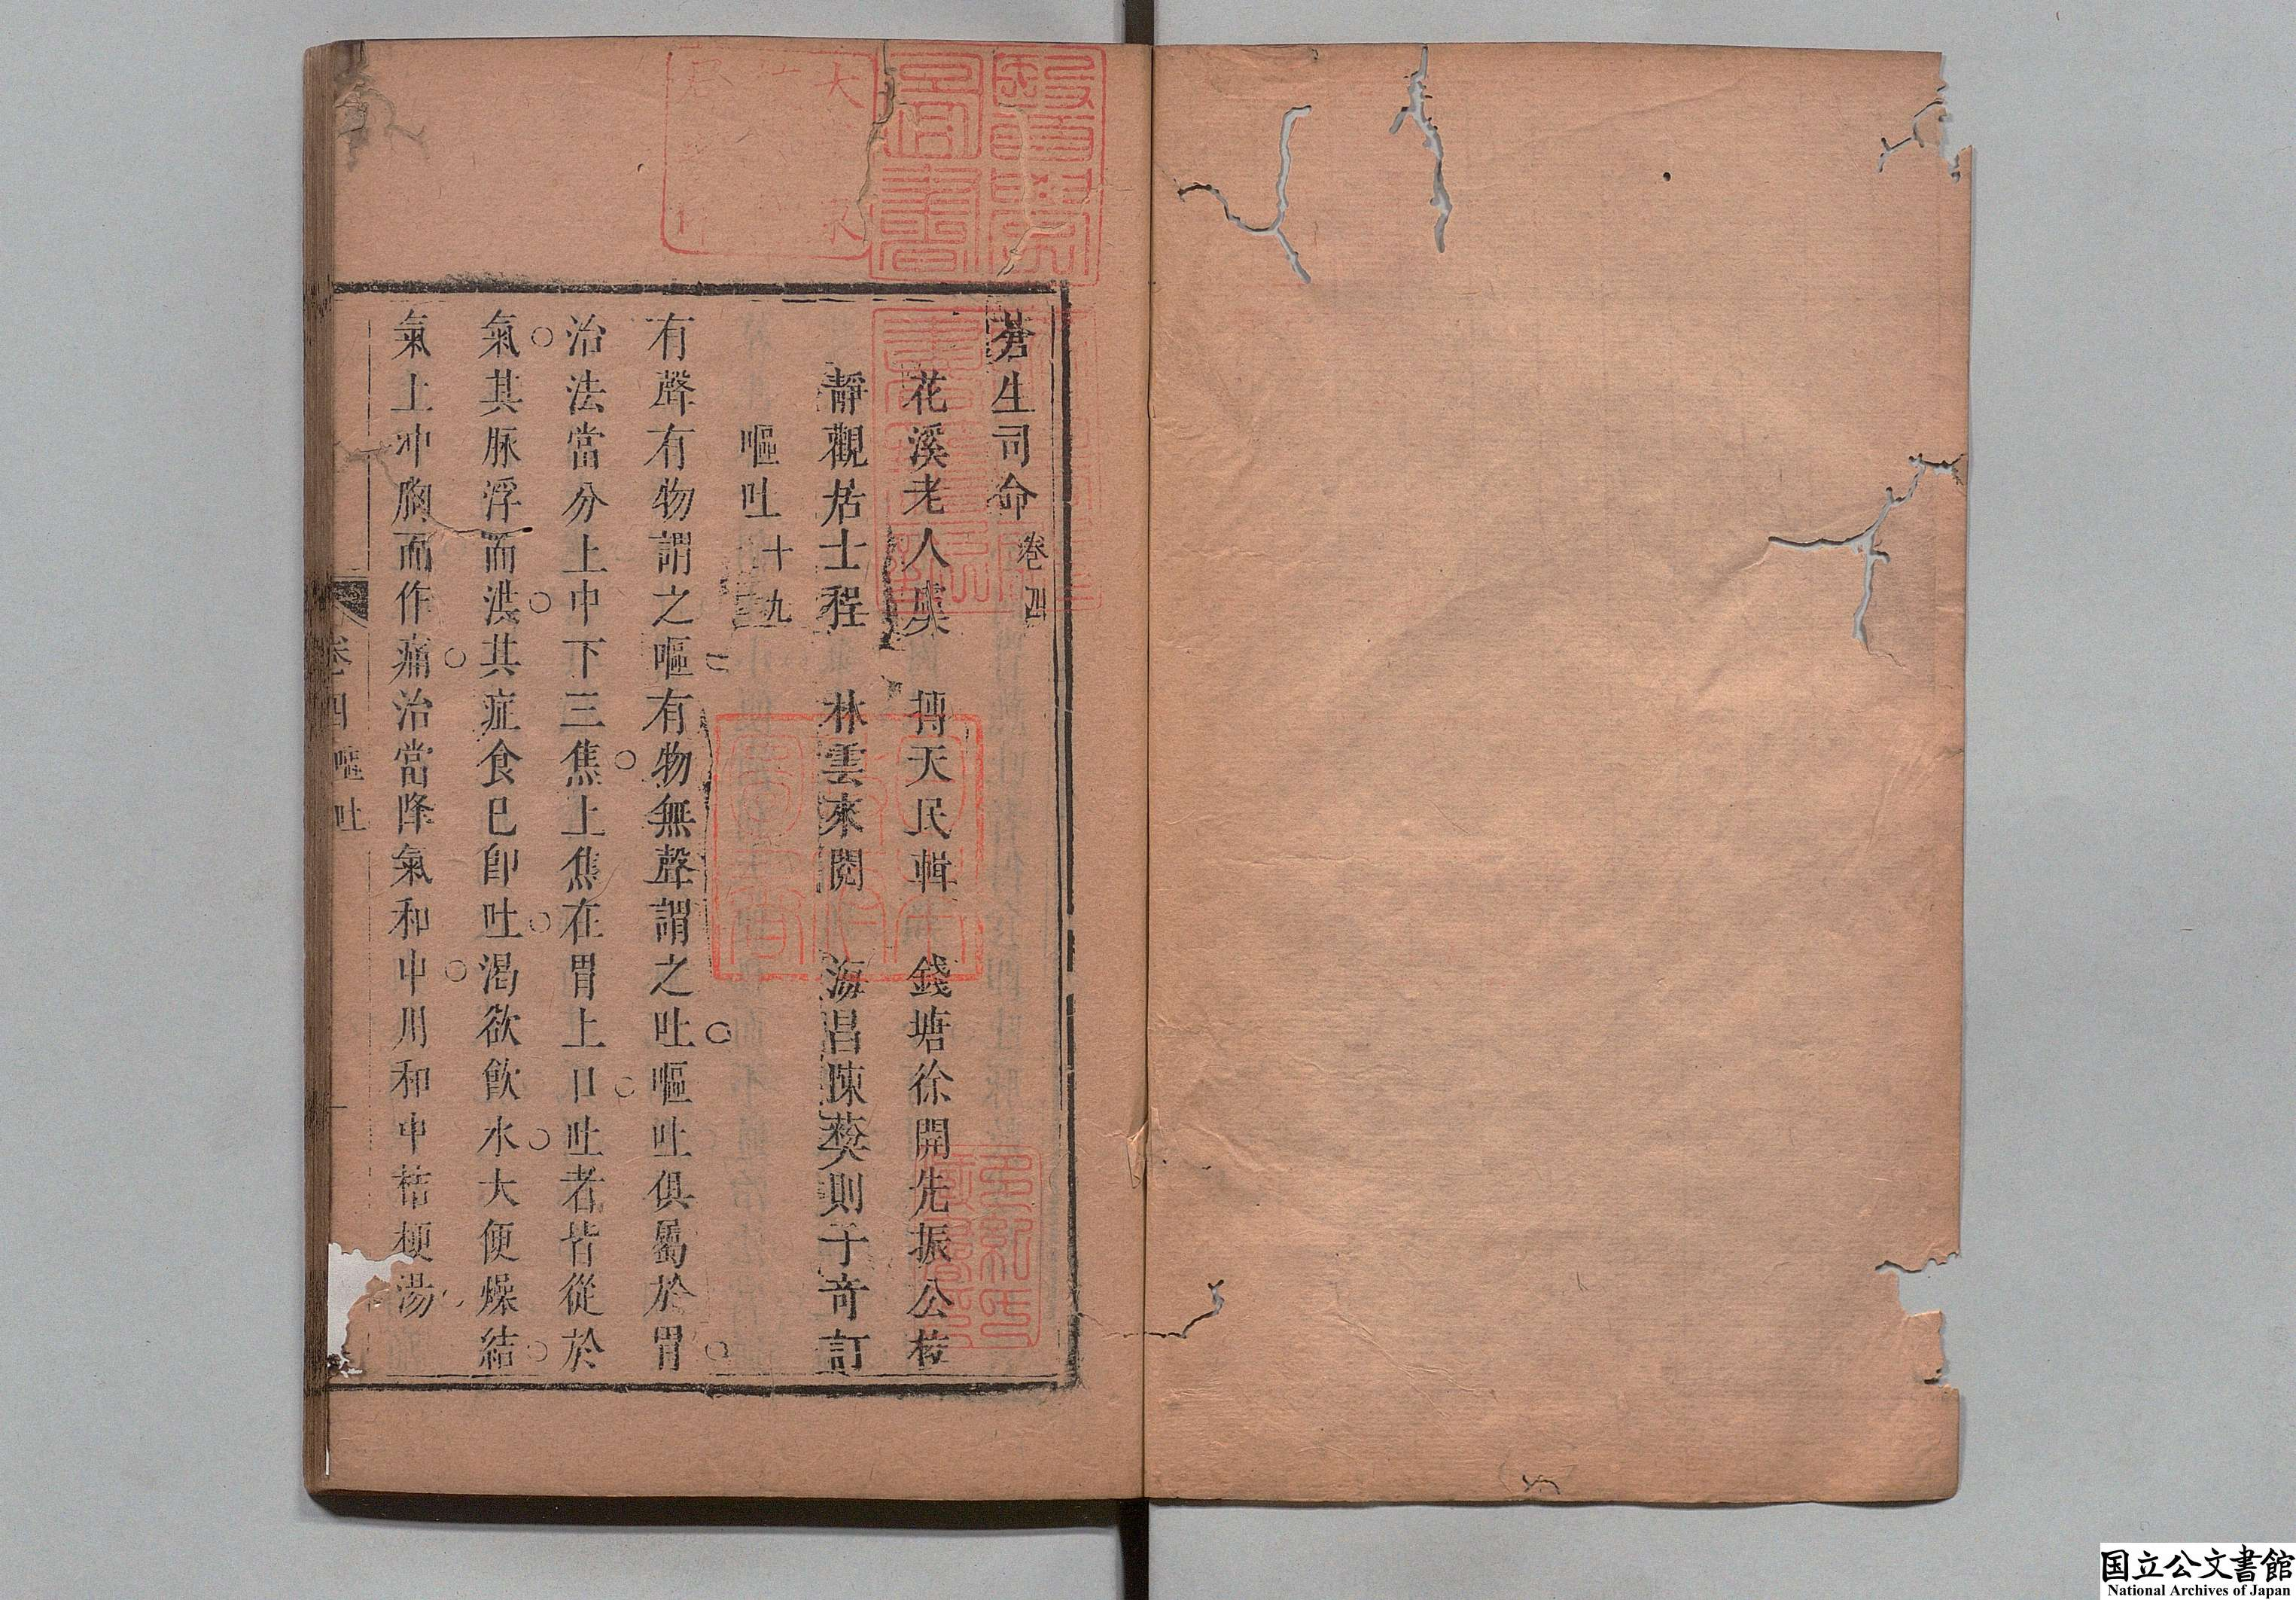 蒼生司命 卷四
花溪老人虞 摶天民輯 錢塘徐開先振公校
靜觀居士程 林雲來閱 海昌陳葵則子奇訂
嘔吐 十九
有聲有物謂之嘔有物無聲謂之吐嘔吐俱屬於胃
治法當分上中下三焦上焦在胃上口吐者皆從於
氣其脉浮而洪其症食已卽吐渴欲飲水大便燥結
氣上冲胸而作痛治當降氣和中用和中桔梗湯
卷四 嘔吐
醫學
圖書
国立公文書館
National Archives of Japan